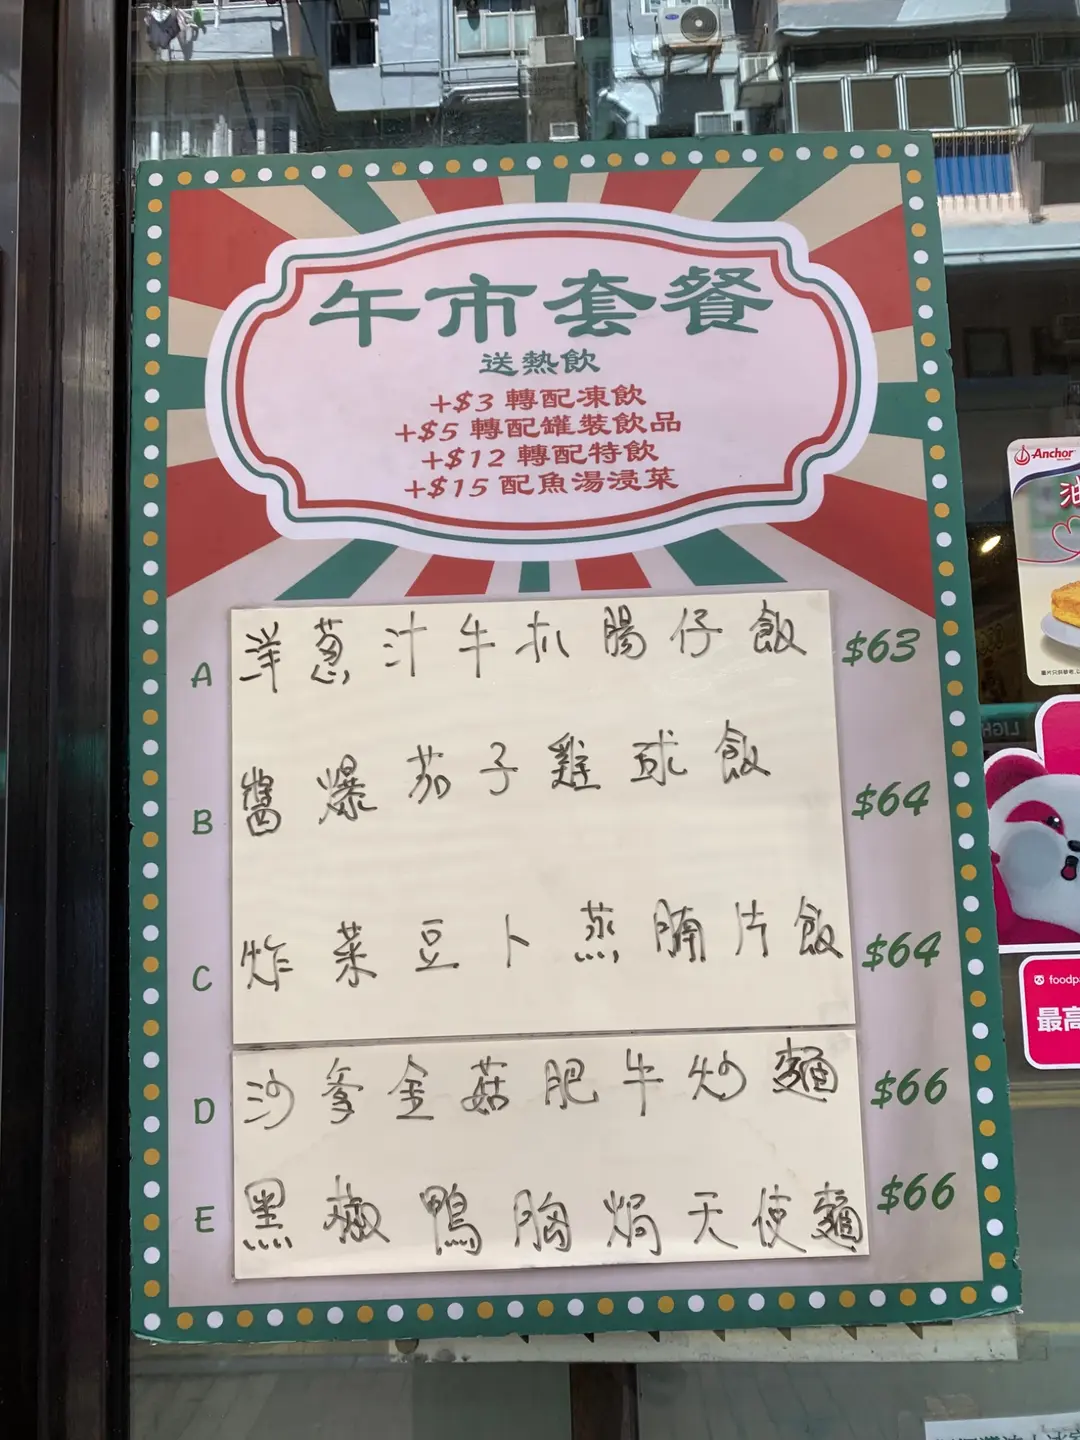 午市套餐
送熱飲
+$3 轉配凍飲
+$5 轉配罐裝飲品
+$12 轉配特飲
+$15 配魚湯浸菜
A 洋葱汁牛扒腸仔飯 $63
B 醬爆茄子雞球飯 $64
C 炸菜豆卜蒸腩片飯 $64
D 沙爹金菇肥牛炒麵 $66
E 黑椒鴨胸焗天使麵 $66
Anchor
油
foodpa
最高